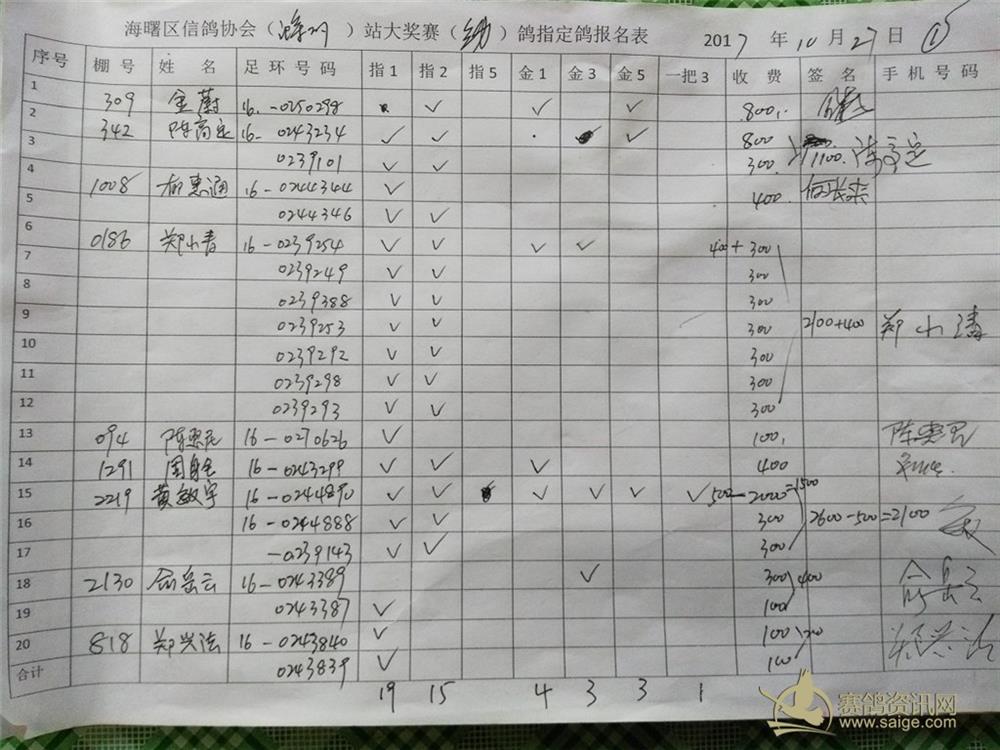 海曙区信鸽协会（ ）站大奖赛（幼）鸽指定鸽报名表 2017 年 10 月 27 日 ⑮
序号 棚号 姓 名 足环号码 指1 指2 指5 金1 金3 金5 一把3 收 费 签 名 手机号码
1
2 309 金蔚 16.-0250298 ✓ ✓ ✓ 800.
3 342 陈高定 16-0243234 ✓ ✓ ✓ 800
0239101 ✓ ✓ 300 1100. 陈高定
4
5 1008 柳惠通 16-0244344 ✓ 400.
0244346 ✓ ✓
6
7 0186 郑小青 16-0239254 ✓ ✓ ✓ ✓ 400+300
0239249 ✓ ✓ 300
8 0239388 ✓ ✓ 300
9 0239253 ✓ ✓ 300 2100+400 郑小清
10 0239292 ✓ ✓ 300
11 0239298 ✓ ✓ 300
12 0239293 ✓ ✓ 300
13 094 陈惠民 16-0270626 ✓ 100. 陈惠民
14 1291 周自全 16-0243299 ✓ ✓ ✓ 400
15 2219 黄敏宇 16-0244890 ✓ ✓ ✓ ✓ ✓ ✓ 500-2000=1500
16 16-0244888 ✓ ✓ 300 2600-500=2100
17 -0239143 ✓ ✓ 300
18 2130 俞岳云 16-0243389 ✓ 300 400 俞岳云
19 0243387 ✓ 100
20 818 郑兴法 16-0243840 ✓ 100 200 郑兴法
合计 0243839 ✓ 100
19 15 4 3 3 1
赛鸽资讯网
www.saige.com